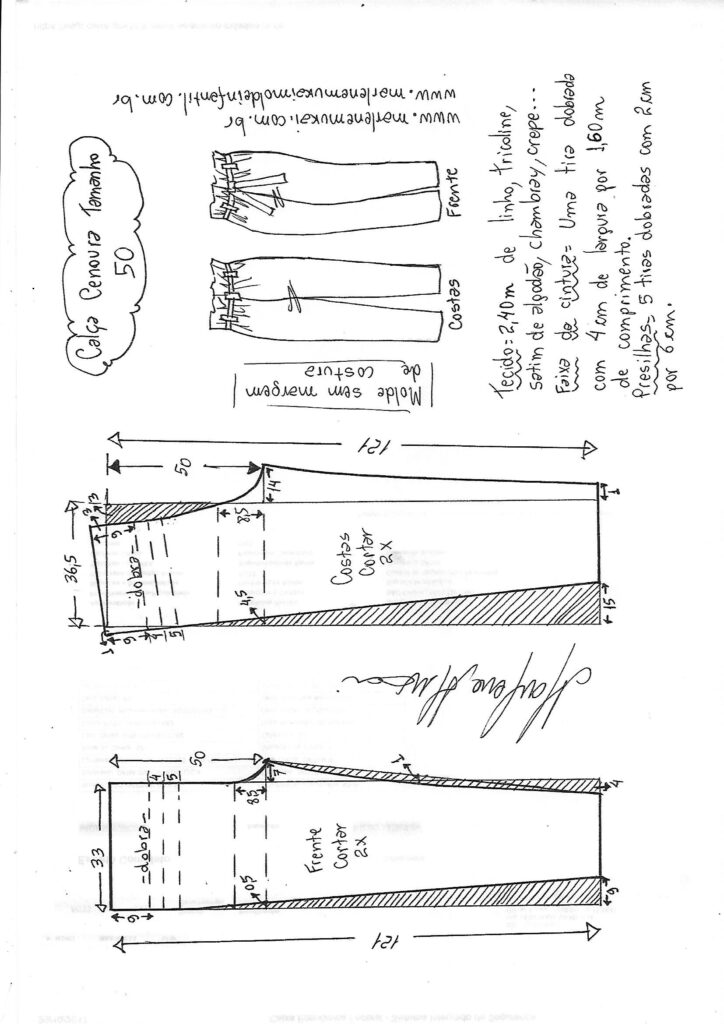 Calça Cenoura Tamanho
50
www.marlenemukai.com.br
www.marlenemukaimoldeinfantil.com.br
Costas
Frente
Molde sem margem
de costura
Tecido= 2,40m de linho, tricoline,
satim de algodão, chambray, crepe...
Faixa da cintura= Uma tira dobrada
com 4cm de largura por 1,60m
de comprimento.
Presilhas= 5 tiras dobradas com 2cm
por 6cm.
121
50
36,5
3
3
14
8,5
9
-dobra-
4,5
1
9
4
5
Costas
Cortar
2X
1
15
Marlene Mukai
50
4
5
7
8,5
1
33
-dobra-
Frente
Cortar
2X
0,5
9
4
9
121